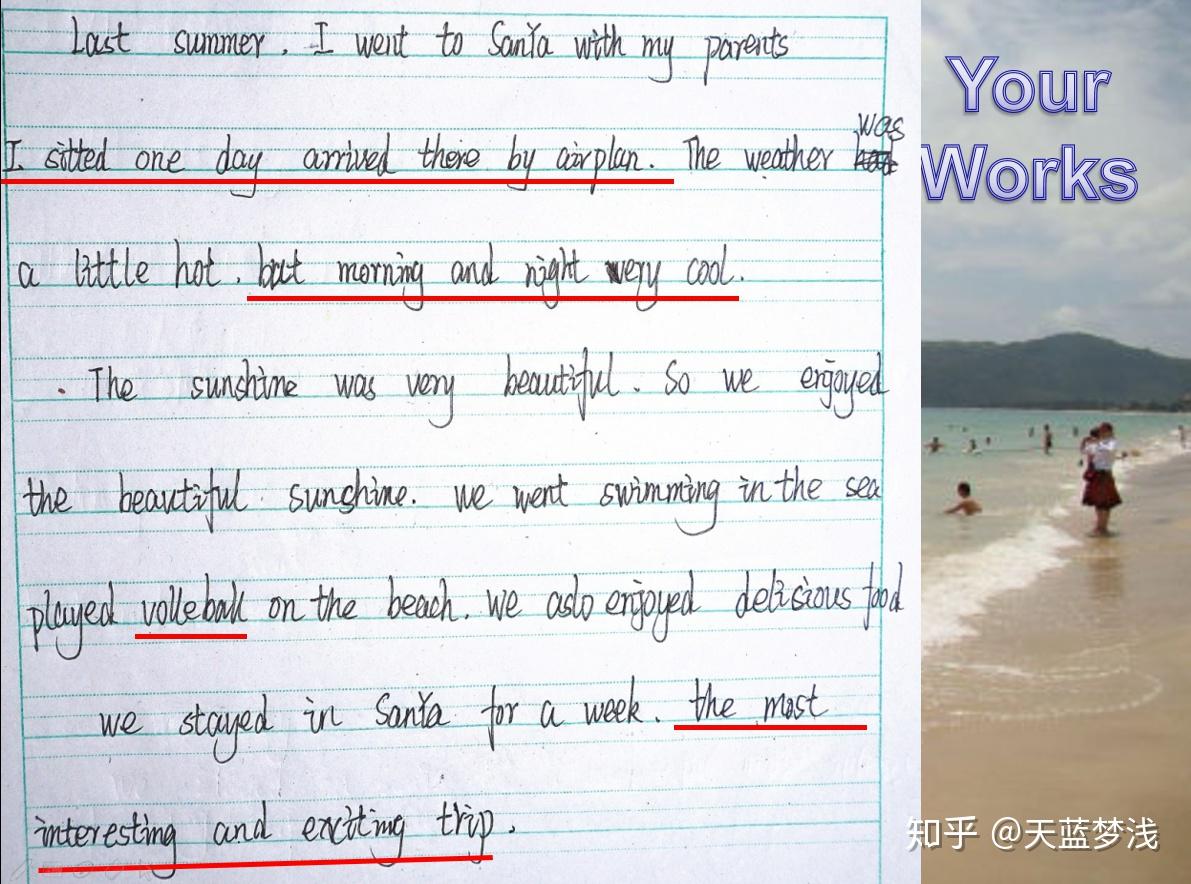 Last summer. I went to SanYa with my parents
I sitted one day arrived there by airplan. The weather was
a little hot. but morning and night very cool.
The sunshine was very beautiful. So we enjoyed
the beautiful sunshine. we went swimming in the sea
played volleball on the beach. we aslo enjoyed delisious food
we stayed in SanYa for a week. the most
interesting and exciting trip.
Your
Works
知乎 @天蓝梦浅